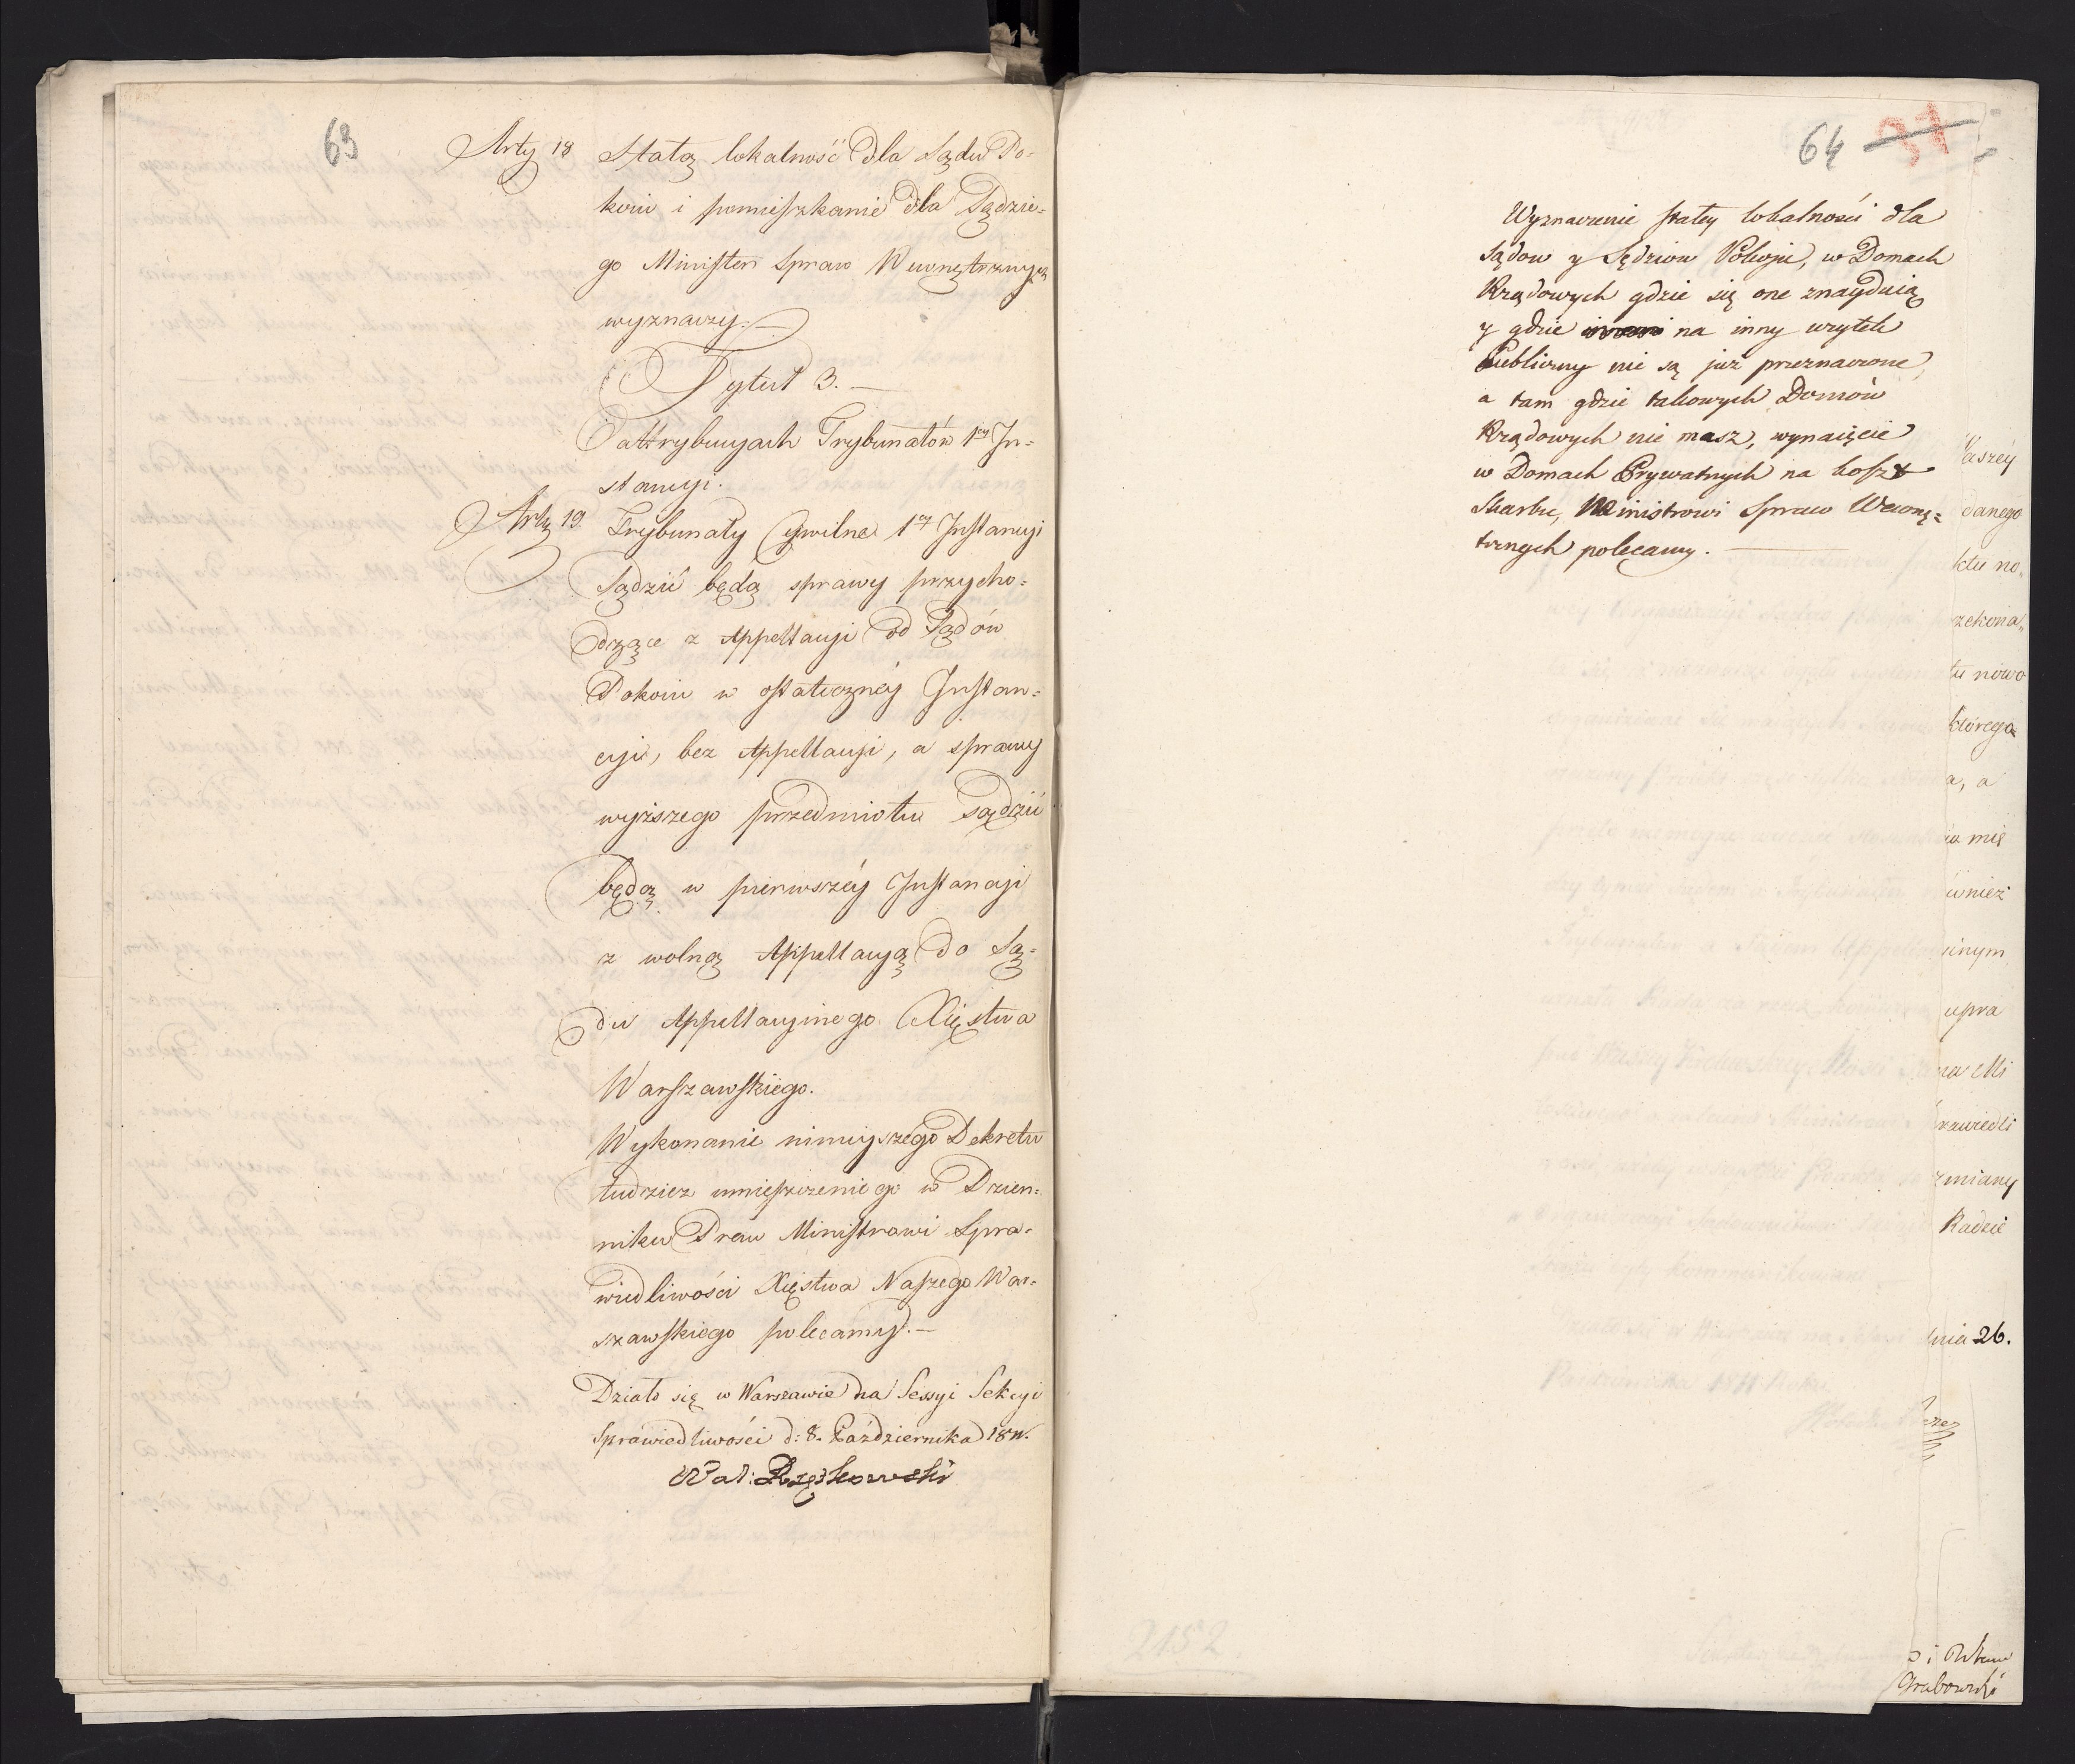 63
Arty 18 Stałą lokalność dla Sądu Po-
koiu i pomieszkanie dla Sądzie-
go Minister Spraw Wewnętrznych
wyznaczy. —
Tytuł 3. —
O attrybucyach Trybunałów 1ey In-
stancyi.
Arty 19. Trybunały Cywilne 1ey Instancyi
Sądzić będą sprawy przycho-
dzące z Appellacyi od Sądów
Pokoiu w ostateczney Instan-
cyi, bez Appellacyi, a sprawy
wyższego przedmiotu sądzić
będą w pierwszéy Instancyi
z wolną Appellacyą do Są-
du Appellacyinego Xięstwa
Warszawskiego.
Wykonanie ninieyszégo Dekretu
tudzież umieszczenie go w Dzien-
niku Praw Ministrowi Spra-
wiedliwości Xięstwa Naszego War-
szawskiego polecamy. —
Działo się w Warszawie na Sessyi Sekcyi
Sprawiedliwości d: 8. Października 1811.
64 37
Wyznaczenie stałey lokalności dla
Sądow y Sędziow Pokoju, w Domach
Rządowych gdzie się one znayduią
y gdzie na inny użytek
Publiczny nie są już przeznaczone,
a tam gdzie takowych Domów
Rządowych nie masz, wynaięcie
w Domach Prywatnych na koszt
Skarbu, Ministrowi Spraw Wewnę-
trznych polecamy. —
aszéy
danego
ktu no-
zekona-
tu nowo
którego
a, a
ia mię
ównież
inym
upra
na Mi
rawiedli
zmiany
Radzie
dnia 26.
2152
Grabowski